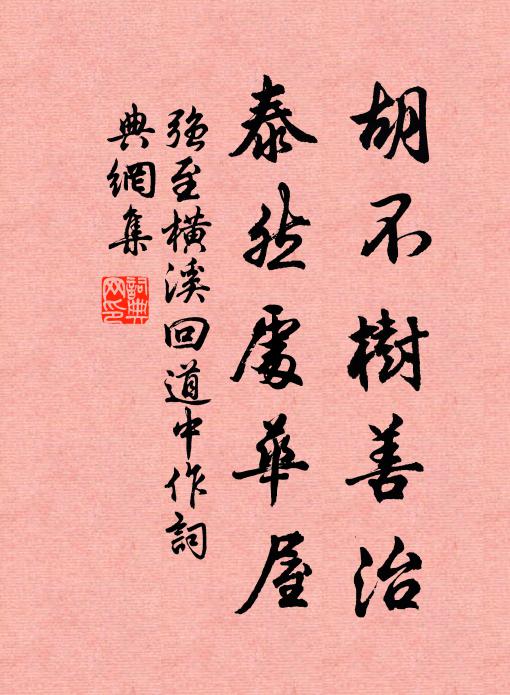 胡不樹善治
泰然處華屋
強至橫溪回道中作詞
典網集
詞典
网印